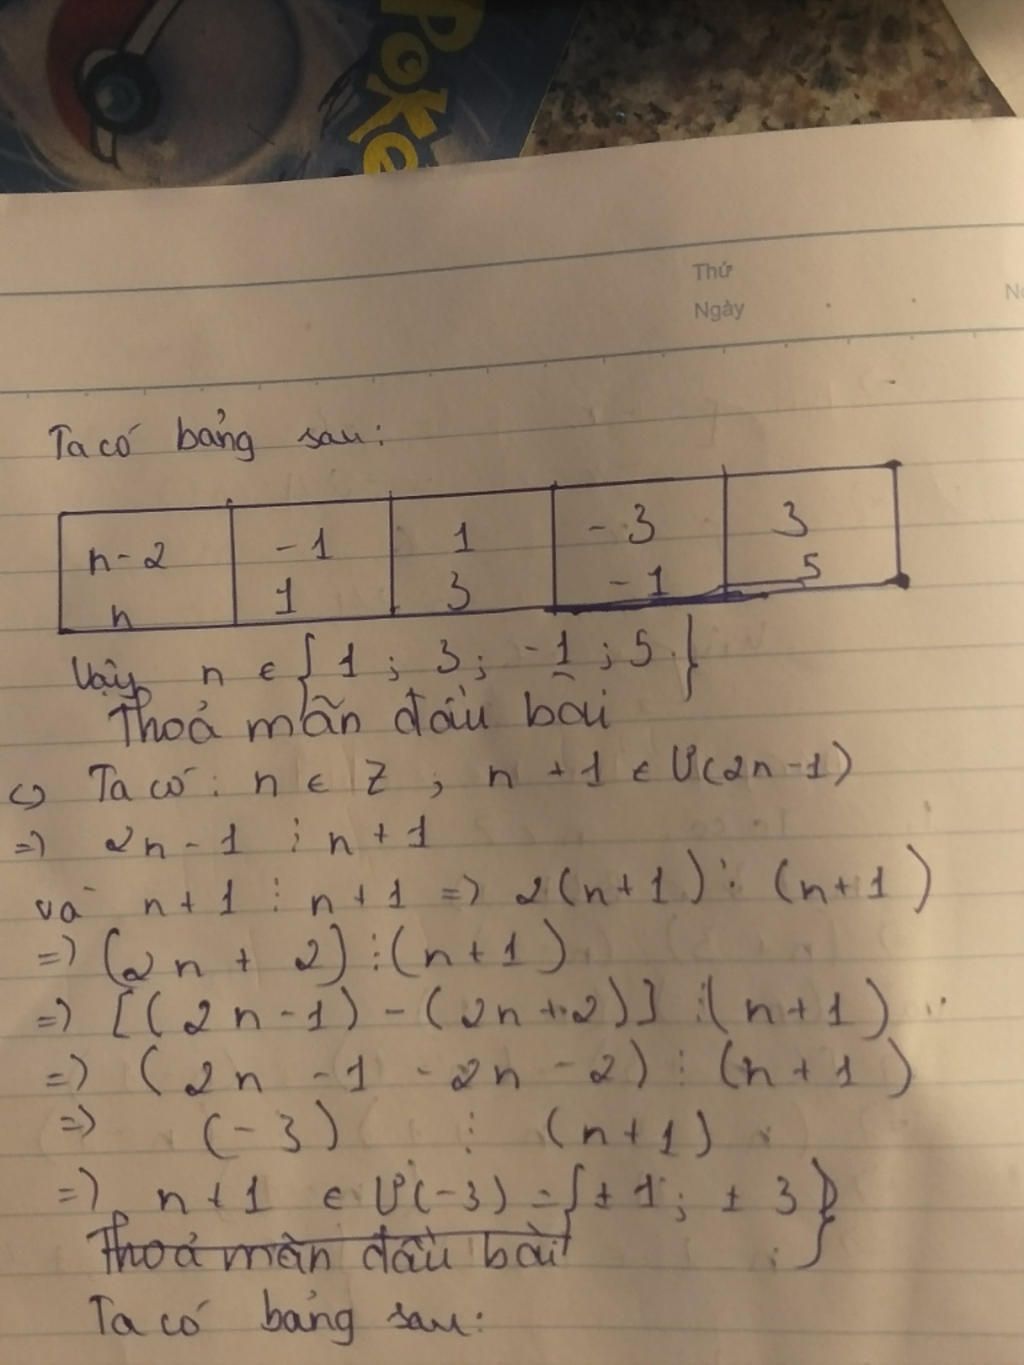 Poke
Thứ
Ngày
Ta có bảng sau:
n-2 -1 1 -3 3
n 1 3 -1 5
Vậy n ∈ {1; 3; -1; 5}
Thoả mãn đầu bài
c) Ta có: n ∈ Z, n+1 ∈ Ư(2n-1)
=) 2n-1 ⋮ n+1
và n+1 ⋮ n+1 =) 2(n+1) ⋮ (n+1)
=) (2n + 2) ⋮ (n+1)
=) [(2n-1) - (2n+2)] ⋮ (n+1)
=) (2n -1 -2n -2) ⋮ (n+1)
=) (-3) ⋮ (n+1)
=) n+1 ∈ Ư(-3) = {±1; ±3}
Thoả mãn đầu bài
Ta có bảng sau: